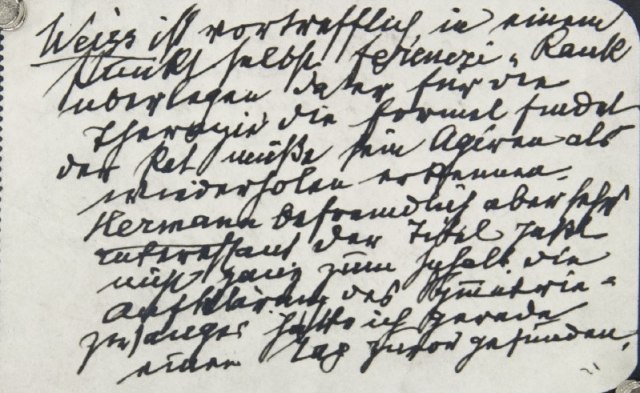 Weiss ist vortrefflich, in einem
Punkt selbst Ferenczi u Rank
überlegen da er für die
Therapie die Formel findet
der Pat müße sein Agiren als
wiederholen erkennen.
Hermann befremdlich aber sehr
interessant der Titel paßt
nicht ganz zum Inhalt die
Aufklärung des Symmetrie-
zwanges hatte ich gerade
einen Tag zuvor gefunden.